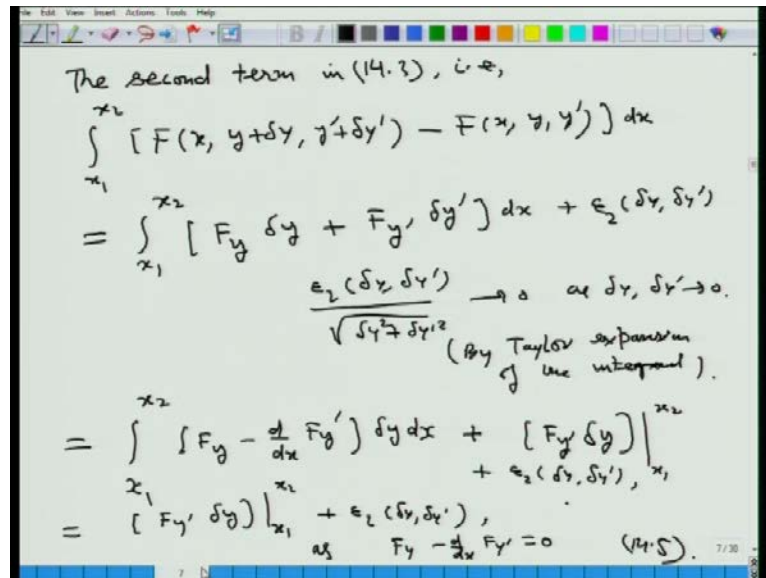 File Edit View Insert Actions Tools Help
The second term in (14.3), i.e,
∫_{x₁}^{x₂} [F(x, y+δy, y'+δy') − F(x, y, y')] dx
= ∫_{x₁}^{x₂} [F_y δy + F_{y'} δy'] dx + ε₂(δy, δy')
ε₂(δy, δy') / √(δy²+δy'²) → 0 as δy, δy' → 0.
(By Taylor expansion
of the integrand).
= ∫_{x₁}^{x₂} [F_y − d/dx F_y'] δy dx + [F_{y'} δy]|_{x₁}^{x₂}
+ ε₂(δy, δy'),
= [F_{y'} δy]|_{x₁}^{x₂} + ε₂(δy, δy'),
as F_y − d/dx F_{y'} = 0 (14.5).
7/30
7